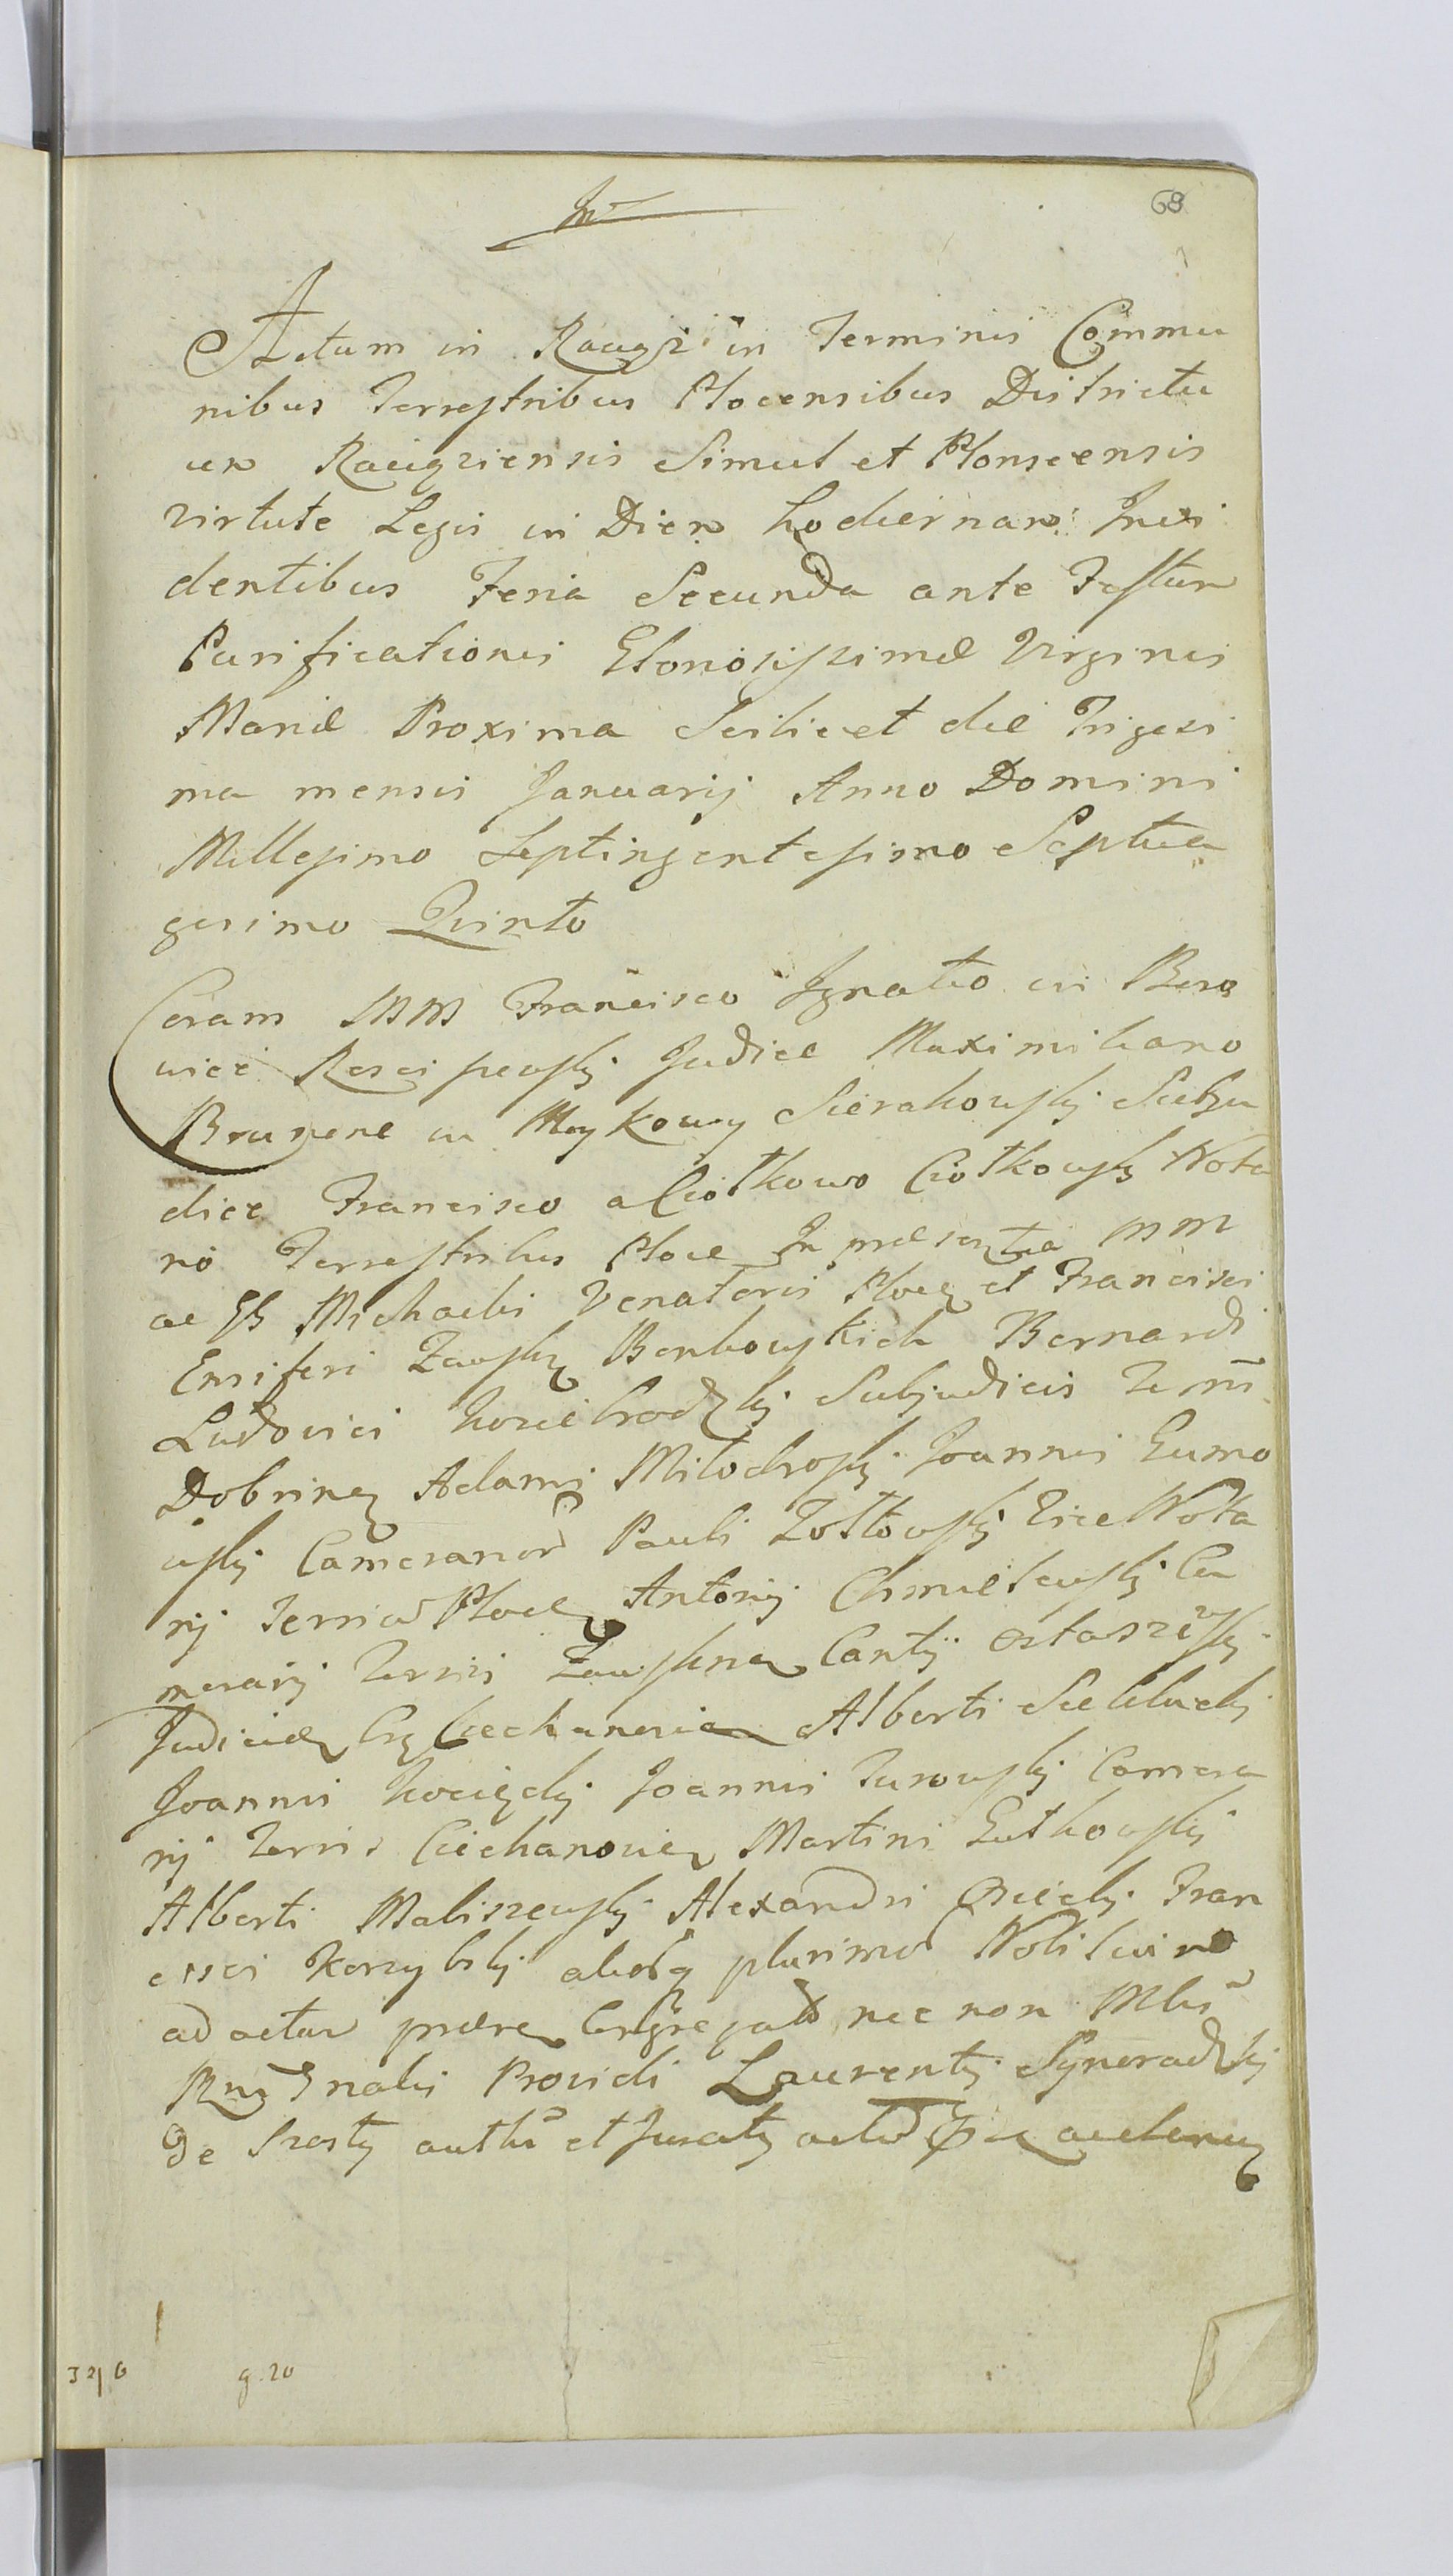 68
Actum in Raciąz in Terminis Commu
nibus Terrestribus Plocensibus Districtu
um Raciąziensis Simul et Plonscensis
virtute Legis in Diem hodiernam Inci
dentibus Feria Secunda ante Festum
Purificationis Gloriosissimæ Virginis
Mariæ Proxima Scilicet die Trigesi
ma mensis Januarij Anno Domini
Millesimo Septingentesimo Septua
gesimo Quinto
Coram MM Francisco Ignatio in
Rościszewski Judice Maximiliano
Brunone in Sierakowski Subju
dice Francisco a Ciółkowo Ciółkowski Nota
rio Terrestribus Ploc In præsentia MM
ac GG Michaelis Venatoris Ploc et Francisci
Ensiferi Zawskr Bernardi
Ludovici Subjudicis Terrū
Dobrinen Adami Miłodroski Joannis Gumo
wski Camerarior Pauli Żółtowski Vice Nota
rij Terrior Ploc Antonij Chmielewski Ca
merarij Terris Zawskrnen Cantij Ostaszewski
Ciechanovien Alberti
Joannis Kocięcki Joannis Turowski Camera
rij Terris Ciechanovien Martini Gutkowski
Alberti Maliszewski Alexandri Fran
cisci Korzybski aliorq plurimor Nobilium
ad actum præsen Congregator nec non Mltr
Gnalis Providi Laurentij
de authen et Jurati actor
32/6 g. 20